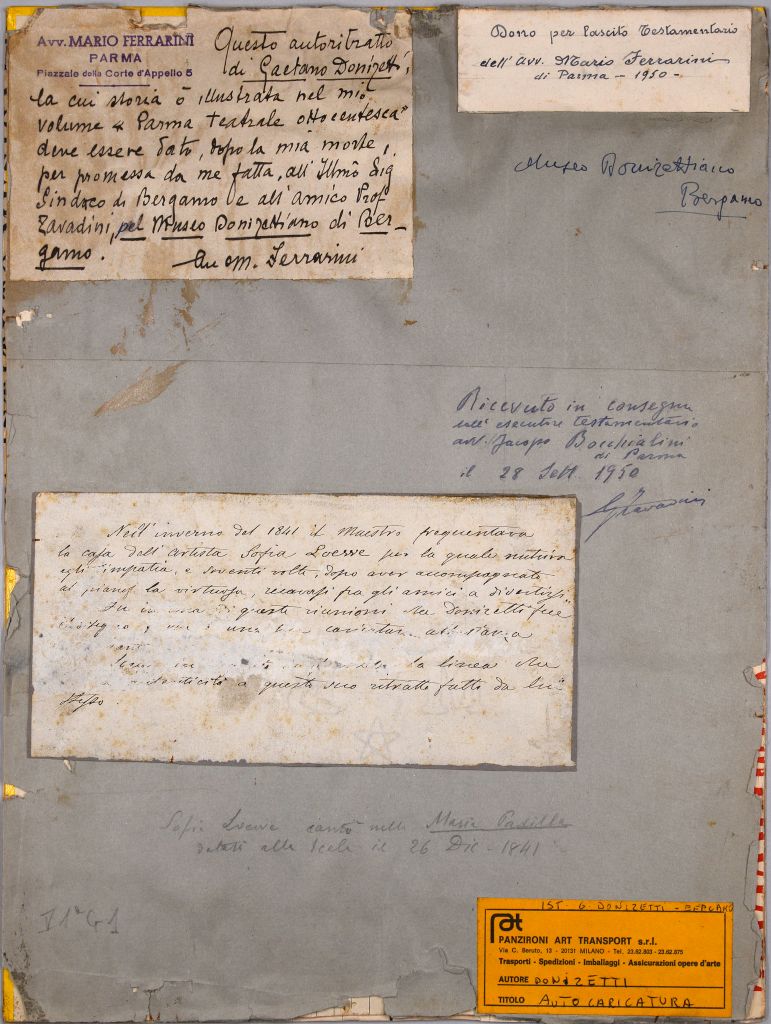 Avv. MARIO FERRARINI
PARMA
Piazzale della Corte d'Appello 5
Questo autoritratto
di Gaetano Donizetti,
la cui storia è illustrata nel mio
volume "Parma teatrale ottocentesca"
deve essere dato, dopo la mia morte,
per promessa da me fatta, all'Illmo Sig
Sindaco di Bergamo e all'amico Prof
Zavadini, pel Museo Donizettiano di Ber-
gamo.
M. Ferrarini
Dono per lascito testamentario
dell'Avv. Mario Ferrarini
di Parma - 1950 -
Museo Donizettiano
Bergamo
Ricevuto in consegna
dall'esecutore testamentario
avv. Jacopo Bocchialini
di Parma
il 28 Sett. 1950
G Zavadini
Nell'inverno del 1841 il Maestro frequentava
la casa dell'artista Sofia Loewe per la quale nutriva
egli simpatia, e sovente volte, dopo aver accompagnato
al pianof. la virtuosa, recavasi fra gli amici a divertirsi.
In una di queste riunioni Donizetti fece
la linea che
a questo suo ritratto fatto da lui
stesso.
Sofia Loewe cantò nella Maria Padilla
datasi alla Scala il 26 Dic. 1841
IST. G. DONIZETTI - BERGAMO
PANZIRONI ART TRANSPORT s.r.l.
Via C. Beruto, 13 - 20131 MILANO - Tel. 23.62.803 - 23.62.875
Trasporti - Spedizioni - Imballaggi - Assicurazioni opere d'arte
AUTORE DONIZETTI
TITOLO AUTOCARICATURA